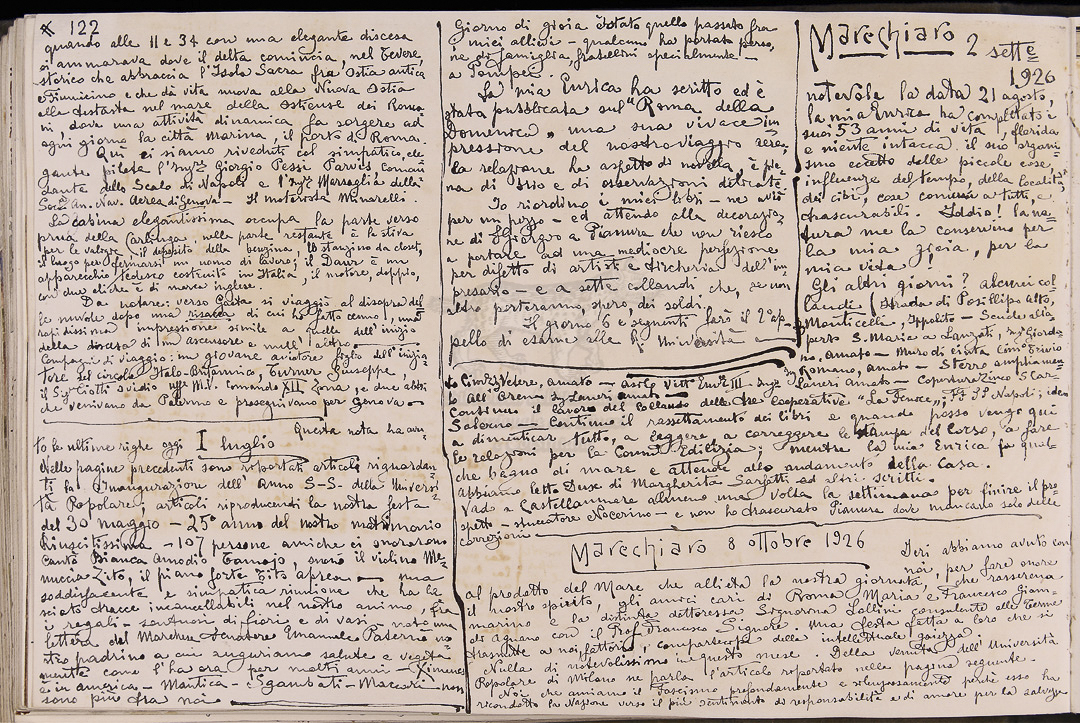 122
quando alle 11 e 34 con una elegante discesa
si ammarava dove il delta comincia, nel Tevere,
storico che abbraccia l'Isola Sacra fra Ostia antica
e Fiumicino e che dà vita nuova alla Nuova Ostia
alla destasta nel mare della ostiense dei Roma
ni, dove una attività dinamica fa sorgere ad
ogni giorno la città marina il porto di Roma.
Qui ci siamo riveduti col simpatico, ele
gante pilota l'Ing Giorgio Pessi Parvis coman
dante dello Scalo di Napoli e l'Ing Marsaglia della
An. Nav. Aerea di Genova — Il motorista Minarelli.
La cabina elegantissima occupa la parte verso
prua della carlinga, nella parte restante è la stiva
per le valigie, il deposito della benzina, lo stanzino da closet,
il luogo per fermarsi un uomo di lavoro; il Dawr è un
apparecchio tedesco costruito in Italia, il motore, doppio,
con due eliche è di marca inglese.
Da notare: verso Gaeta si viaggiò al disopra del
le nuvole, dopo una risacca di cui ho fatto cenno, una
rapidissima impressione simile a quella dell'inizio
della discesa di un ascensore e null'altro
Compagni di viaggio: un giovane aviatore figlio dell'inizia
tore del circolo Italo-Britannico, Turner Giuseppe,
il Sig Ciotti Ovidio uff M.V. comando XII Zona, e due altri
che venivano da Palermo e proseguivano per Genova —
Questa nota ha avu
to le ultime righe oggi I luglio
Nelle pagine precedenti sono riportati articoli riguardan
ti la inaugurazione dell'Anno S-S- della Universi
tà Popolare; articoli riproducenti la nostra festa
del 30 maggio — 25° anno del nostro matrimonio
Riuscitissima — 107 persone amiche ci onorarono
cantò Bianca Amodio, suonò il violino Me
nuccia Zito, il piano forte Tito Aprea — una
soddisfacente e simpatica riunione che ha la
sciato tracce incancellabili nel nostro animo, fra
i regali — santuosi di fiori e di vasi — noto una
lettera del Marchese Senatore Emanuele Paternò no
stro padrino a cui auguriamo salute e vegeta
mente come l'ha ora per molti anni — Ximenes
è in america — Mantica — Sgambati — Macari non
sono più fra noi
Giorno di gioia è stato quello passato fra
i miei allievi — qualcuno ha portato perso
ne di famiglia, fratellini specialmente —
a Pompei.
La mia Enrica ha scritto ed è
stata pubblicata sul "Roma della
Domenica" una sua vivace im
pressione del nostro viaggio aereo,
la relazione ha aspetto di novella, è pie
na di brio e di osservazioni delicate.
Io riordino i miei libri — ne avrò
per un pezzo — ed attendo alla decorazio
ne di S Giorgio a Pianura che non riesco
a portare ad una mediocre perfezione
per difetto di artisti e tircheria dell'im
presario — e a sette collaudi che, se non
altro porteranno, spero, dei soldi.
Il giorno 6 e seguenti farò il 2° ap
pello di esame alla R Università
Marechiaro 2 sette
1926
notevole la data 21 agosto,
la mia Enrica ha completato i
suoi 53 anni di vita, florida
e niente intacca il suo organi
smo eccetto delle piccole cose,
influenze del tempo, della località
dei cibi, cose comuni a tutti, e
trascurabili. Iddio! la na
tura me la conservino per
la mia gioia, per la
mia vita!
Gli altri giorni? alcuni col
laudi (strada di Posillipo alto,
Monticelli, Ippolito — Scuole all'a
perto S. Maria a Lanzati, Ing Giorda
no, Amato — Muro di cinta Cim Trivio
Romano, amato — Sterro ampliamen
to Cimitero Vetere, amato — Asilo Vitt Em III — Ing Laneri amato — copertura Zinco Scar
to All'Arena Ing Laneri amato
Continuo il lavoro del collaudo delle tre cooperative "La Fenice", Napoli; idem
Salerno — Continuo il rassettamento dei libri e quando posso vengo qui
a dimenticar tutto, a leggere, a correggere le stampe del Corso, a fare
le relazioni per la Comm Edilizia; mentre la mia Enrica fa qual
che bagno di mare e attende allo andamento della Casa.
Abbiamo letto Duse di Margherita Sarfatti ed altri scritti.
Vado a Castellammare almeno una volta la settimana per finire il pro
spetto — stuccatore Nocerino — e non ho trascurato Pianura dove mancano solo delle
correzioni
Marechiaro 8 ottobre 1926
Ieri abbiamo avuto con
noi, per fare onore
al prodotto del Mare che allieta la nostra giornata, e che rasserena
il nostro spirito, gli amici cari di Roma Maria e Francesco Giam=
marino e la distinta dottoressa Signorina Lollini consulente alle Terme
di Agnano con il Prof Francesco Signore. Una festa fatta a loro che si
trasmise a noi fattori, compartecipi della intellettuale gaiezza.
Nulla di notevolissimo in questo mese. Della venuta dell'Università
Popolare di Milano ne parla l'articolo riportato nelle pagine seguente.
Noi che amiamo il Fascismo profondamente e religiosamente perché esso ha
ricondotto la Nazione verso il più sentimento di responsabilità e di amore per la salvezza